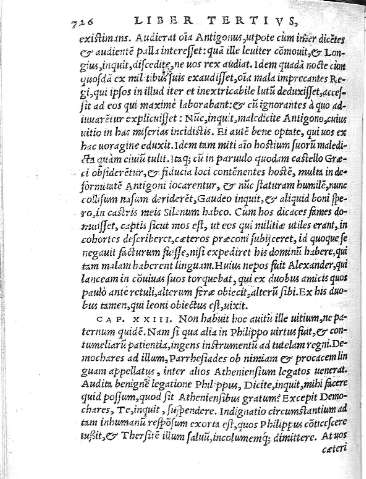 726 LIBER TERTIVS,
existimans. Audierat oīa Antigonus, utpote cum inter dicētes
& audientē palla interesset: quā ille leuiter cōmouit, & Lon-
gius, inquit, discedite, ne uos rex audiat. Idem quadā nocte cùm
quosdā ex militibus suis exaudisset, oīa mala imprecantes Re-
gi, qui ipsos in illud iter et inextricabile lutū deduxisset, acces-
sit ad eos qui maximè laborabant: & cū ignorantes à quo ad-
iuuarētur explicuisset: Nūc, inquit, maledicite Antigono, cuius
uitio in has miserias incidistis. Et autē bene optate, qui uos ex
hac uoragine eduxit. Idem tam miti aīo hostium suorū maledi-
cta quàm ciuiū tulit. Itaq; cū in paruulo quodam castello Græ-
ci obsiderētur, & fiducia loci contēnentes hostē, multa in de-
formitatē Antigoni iocarentur, & nūc staturam humilē, nunc
collisum nasum deriderēt, Gaudeo inquit, & aliquid boni spe-
ro, in castris meis Silenum habeo. Cum hos dicaces fames do-
muisset, captis sicut mos est, ut eos qui militiæ utiles erant, in
cohortes describeret, cæteros præconi subijceret, id quoque se
negauit facturum fuisse, nisi expediret his dominū habere, qui
tam malam haberent linguam. Huius nepos fuit Alexander, qui
lanceam in cōuiuas suos torquebat, qui ex duobus amicis quos
paulò antè retuli, alterum feræ obiecit, alterū sibi. Ex his duo-
bus tamen, qui leoni obiectus est, uixit.
CAP. XXIII. Non habuit hoc auitū ille uitium, ne pa-
ternum quidē. Nam si qua alia in Philippo uirtus fuit, & con-
tumeliarū patientia, ingens instrumentū ad tutelam regni. De-
mochares ad illum, Parrhesiades ob nimiam & procacem lin
guam appellatus, inter alios Atheniensium legatos uenerat.
Audita benignè legatione Philippus, Dicite, inquit, mihi facere
quid possum, quod sit Atheniensibus gratum? Excepit Demo-
chares, Te, inquit, suspendere. Indignatio circumstantium ad
tam inhumanū respōsum exorta est, quos Philippus cōticescere
iussit, & Thersitē illum saluū, incolumemq; dimittere. At uos
cæteri